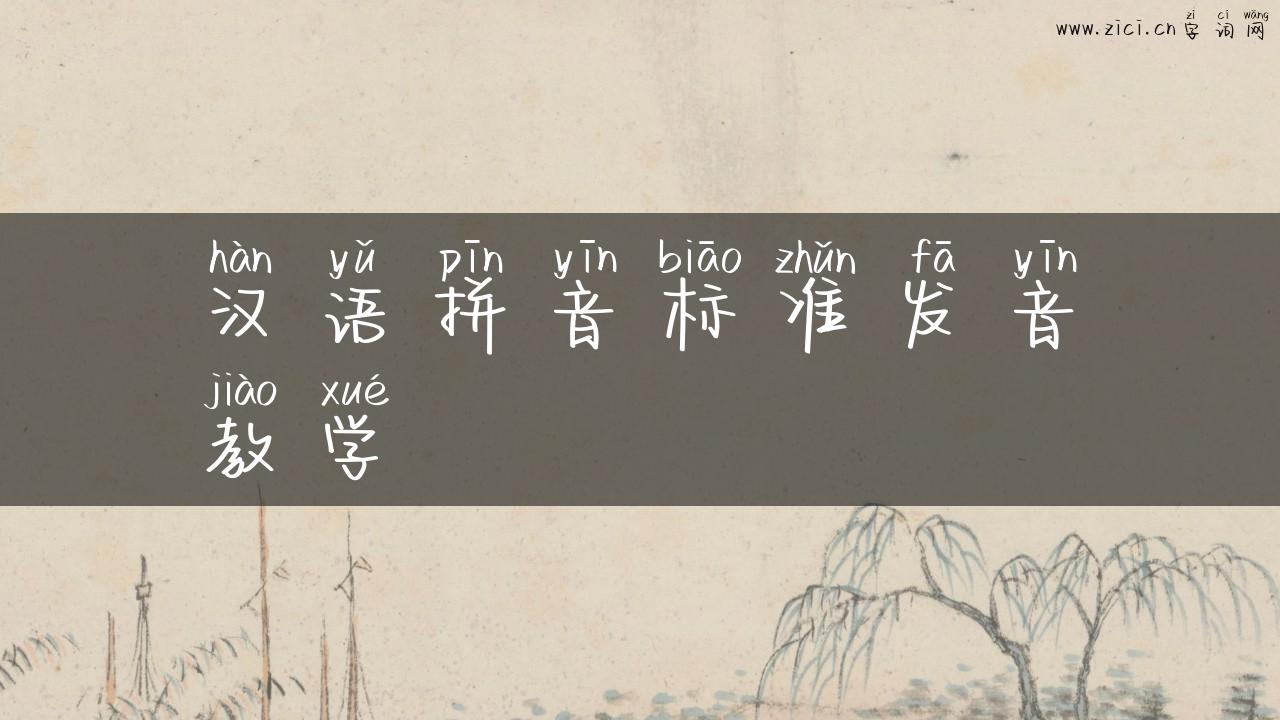 zì cí wǎng
www.zici.cn 字词网
hàn yǔ pīn yīn biāo zhǔn fā yīn
汉语拼音标准发音
jiào xué
教学